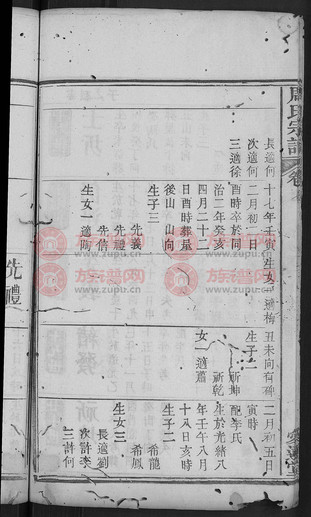 周氏宗譜
卷
二月初五日
寅時
配李氏
生於光緒八
年壬午八月
十八日亥時
生子二
希龍
希鳳
生女三
長適劉
次許李
三許何
丑未向有碑
生子二
所坤
所乾
女一適蕭
生女一適梅
十七年壬寅
二月初二
酉時卒於同
治二年癸亥
四月二十二
日酉時葬屋
後山山向
生子三
先義
先禮
先信
生女一適陶
長適何
次適何
三適徐
先禮
族谱网
www.zupu.cn
族谱网
www.zupu.cn
族谱网
www.zupu.cn